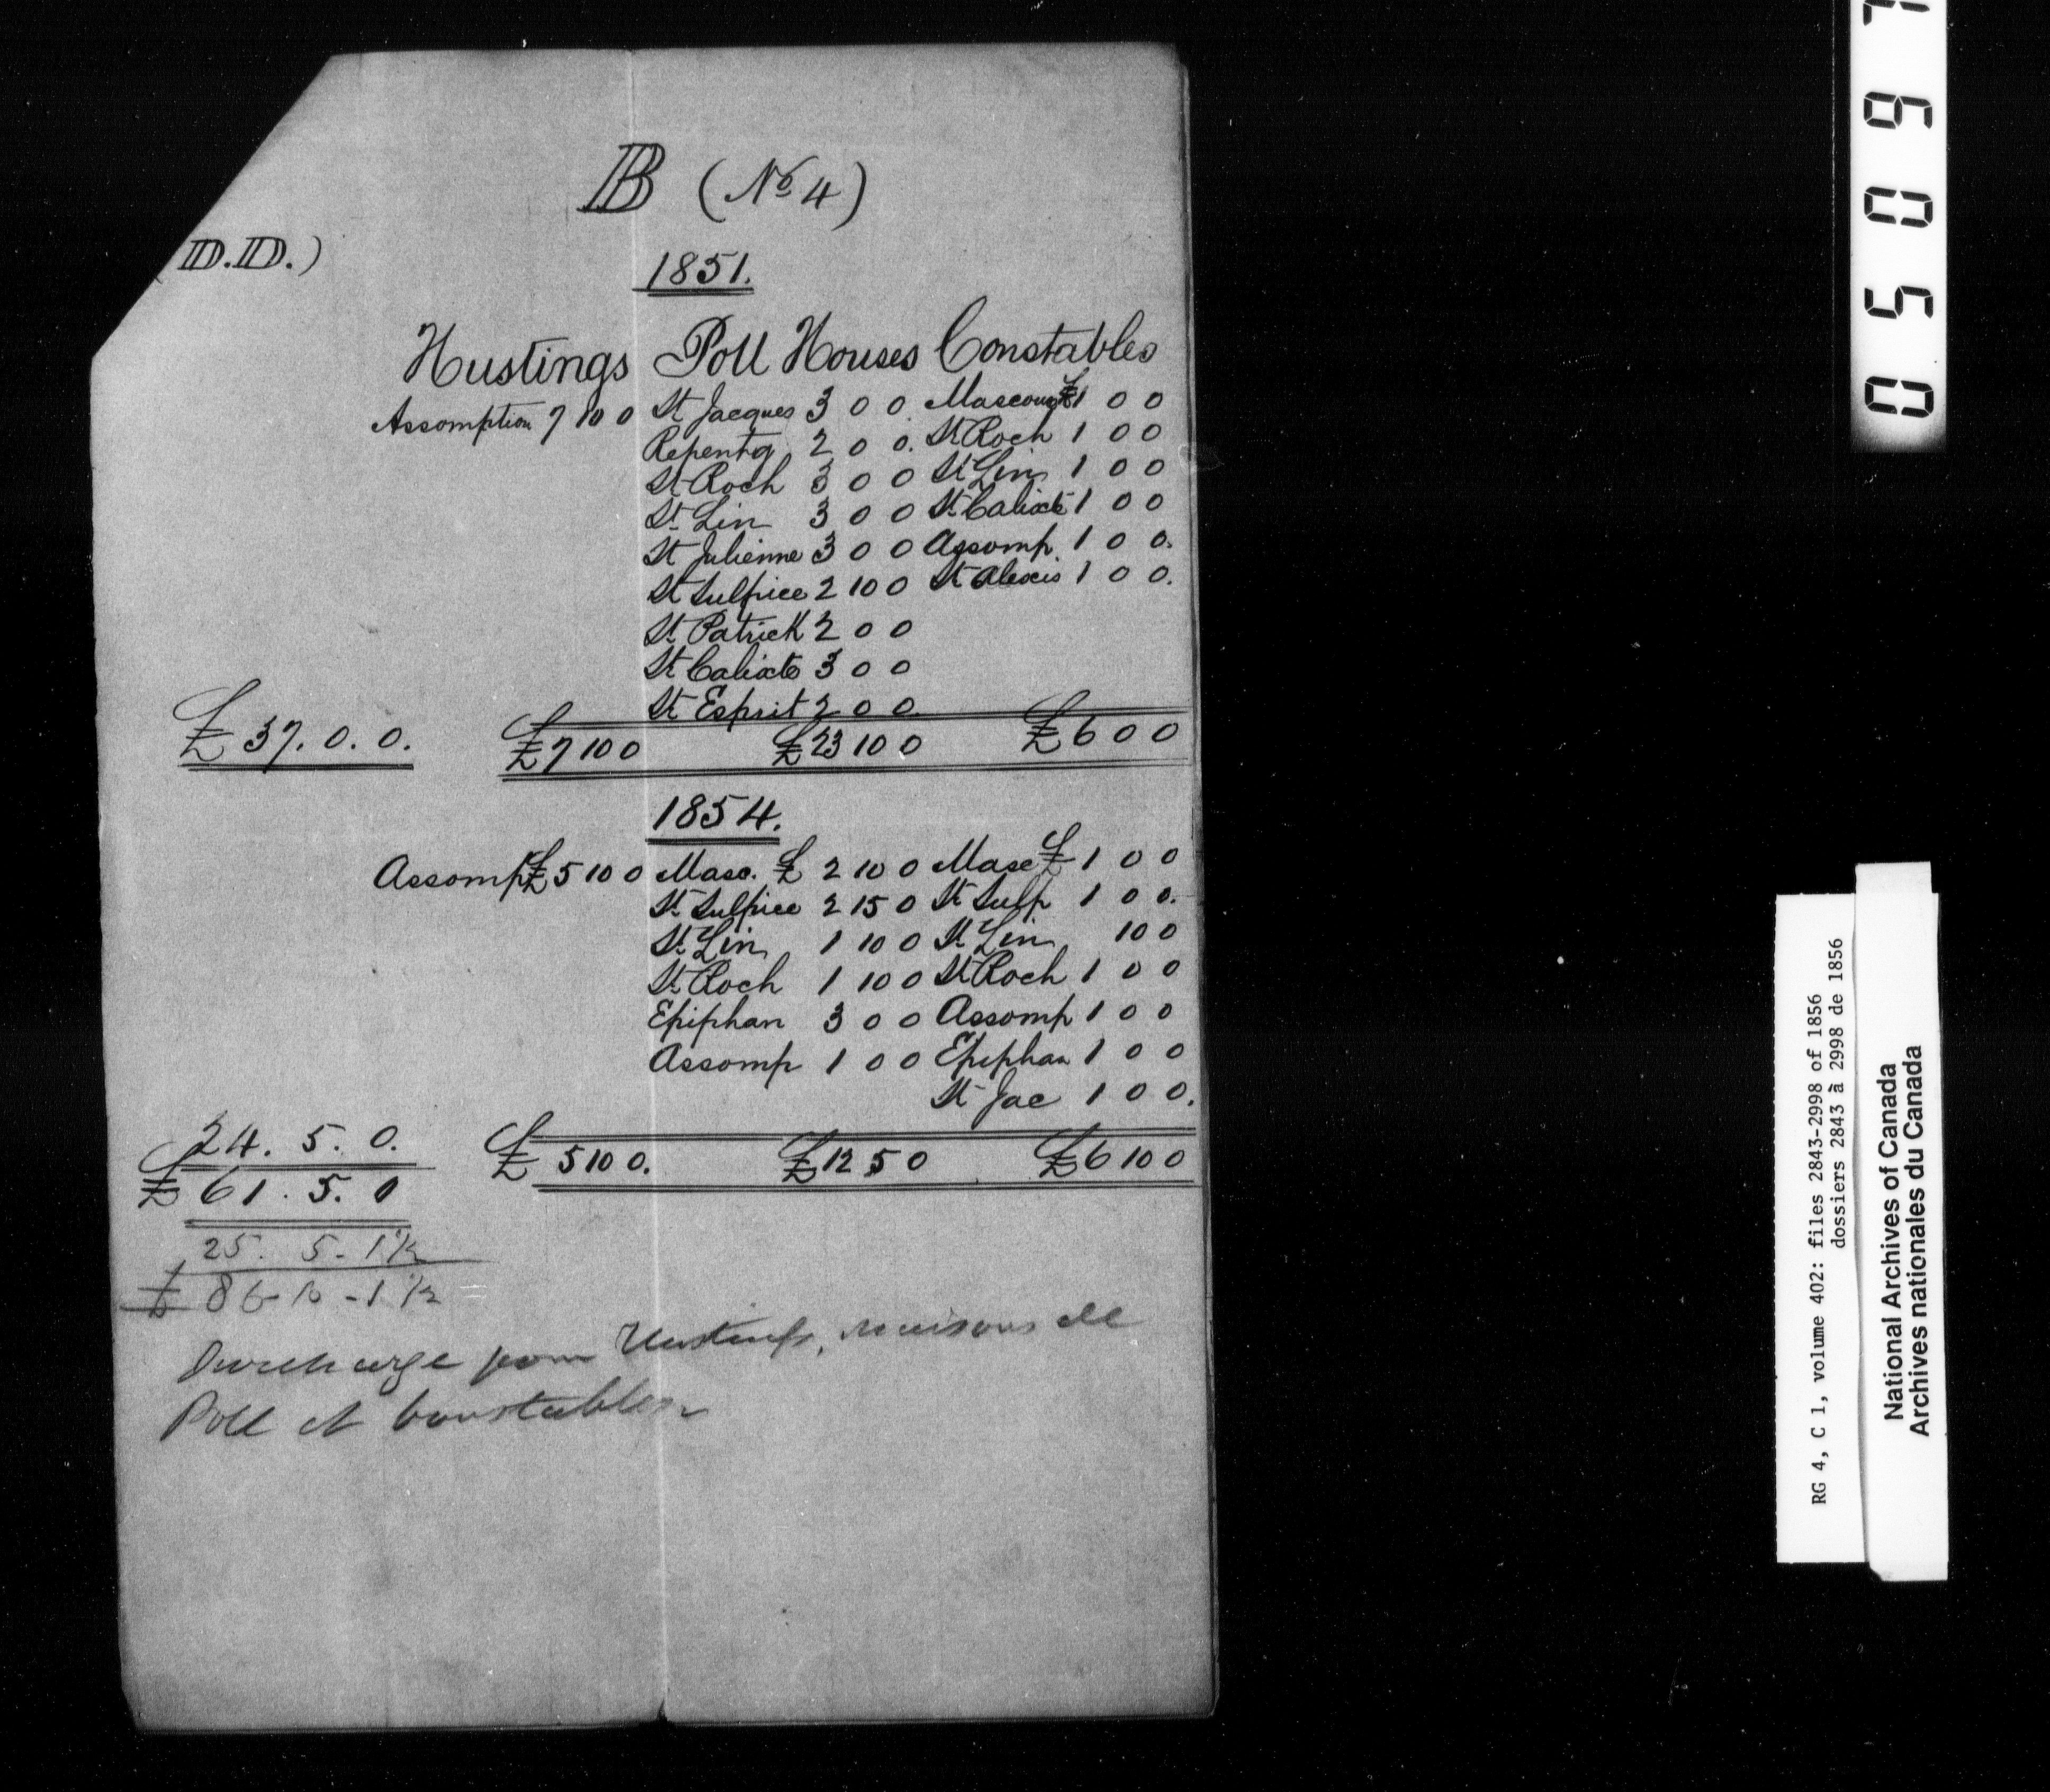 B (No 4)
(D.D.)
1851.
Hustings Poll Houses Constables
Assumption 7 10 0 St Jacques 3 0 0 Mascou £1 0 0
Repentg 2 0 0. St Roch 1 0 0
St Roch 3 0 0 St Lin 1 0 0
St Lin 3 0 0 St Calixte 1 0 0
St Julienne 3 0 0 Assomp. 1 0 0.
St Sulpice 2 10 0 St Alexis 1 0 0.
St Patrick 2 0 0
St Calixte 3 0 0
St Esprit 2 0 0
£37. 0. 0. £7 10 0 £23 10 0 £6 0 0
1854.
Assomp £5 10 0 Masc. £2 10 0 Masc £1 0 0
St Sulpice 2 15 0 St Sulp 1 0 0.
St Lin 1 10 0 St Lin 10 0
St Roch 1 10 0 St Roch 1 0 0
Epiphan 3 0 0 Assomp 1 0 0
Assomp 1 0 0 Epiphan 1 0 0
St Jac 1 0 0.
24. 5. 0. £5 10 0. £12 5 0 £6 10 0
£61. 5. 0
25. 5 - 1½
£86 - 10 - 1½
Surcharge pour Hustings, maisons de
Poll et Constables
0509
RG 4, C 1, volume 402: files 2843-2998 of 1856
dossiers 2843 à 2998 de 1856
National Archives of Canada
Archives nationales du Canada